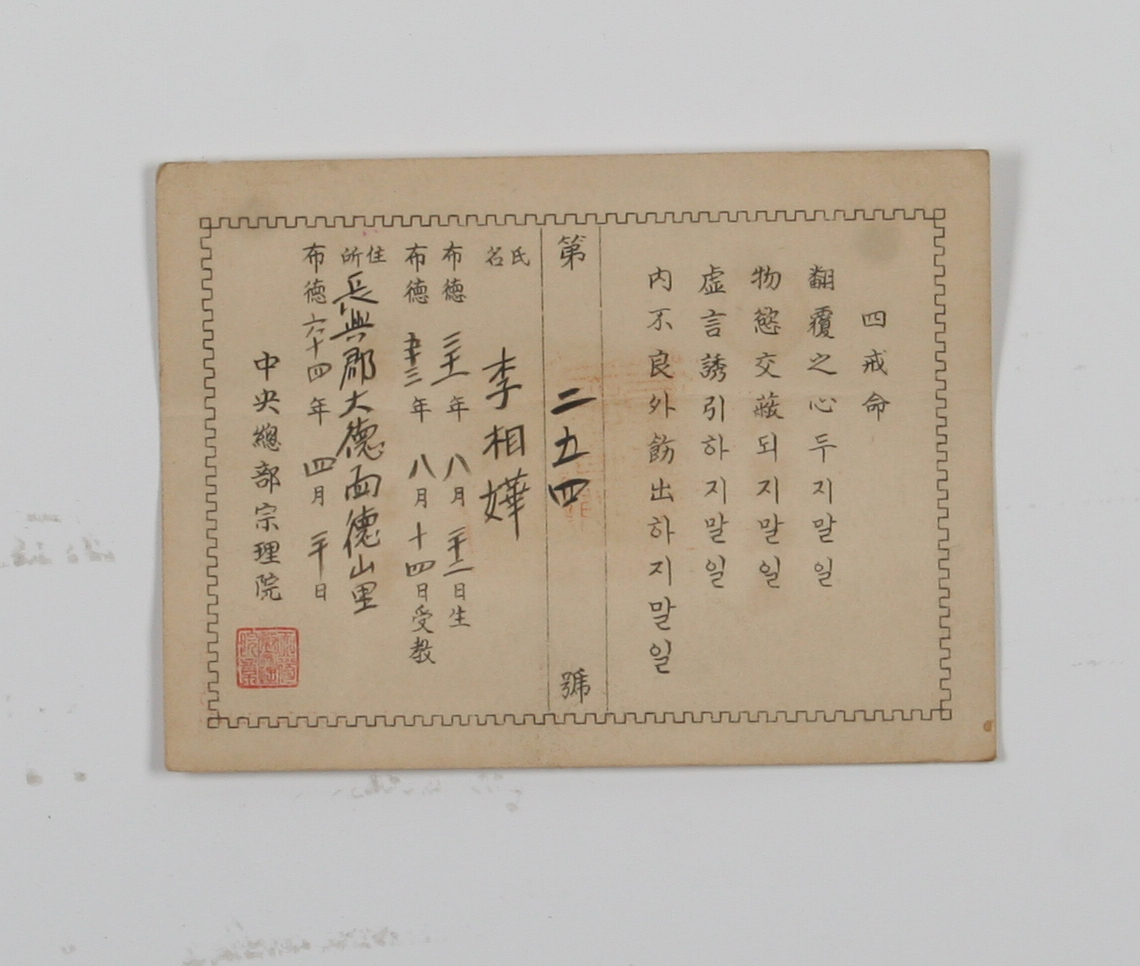 四戒命
翻覆之心두지말일
物慾交蔽되지말일
虛言誘引하지말일
內不良外飭出하지말일
第二五四號
氏名 李相嬅
布德 三十一年 八月 二十二日生
布德 五十三年 八月 十四日受敎
住所 長興郡大德面德山里
布德 六十四年 四月 二十日
中央總部宗理院